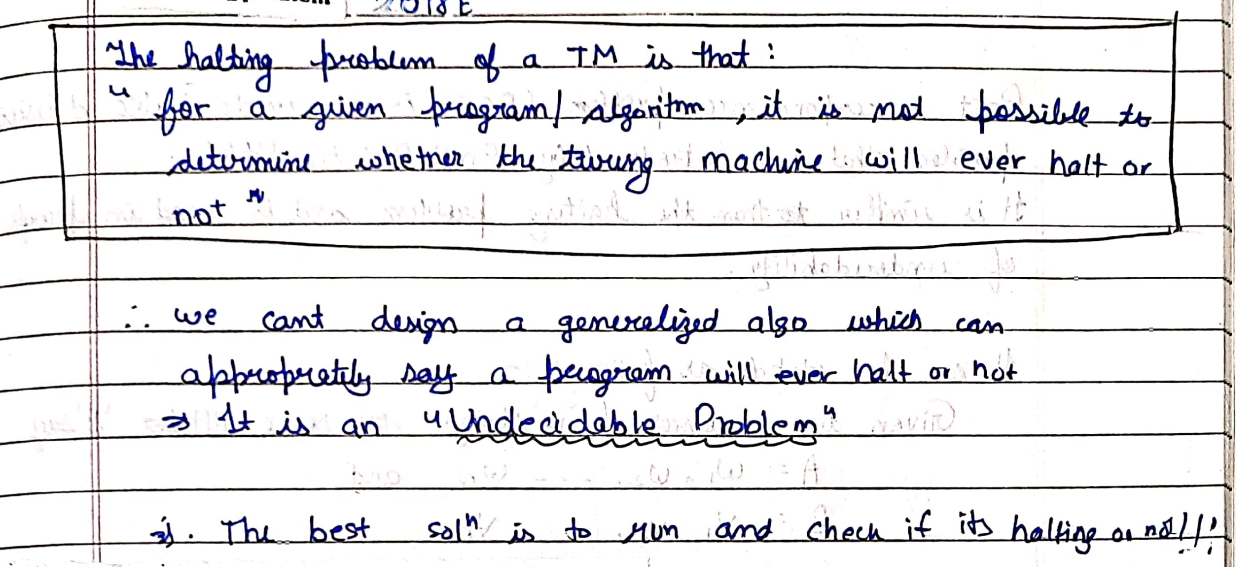 The halting problem of a TM is that :
" for a given program/ algoritm , it is not possible to
determine whether the turung machine will ever halt or
not "
∴ we cant design a generalized algo which can
appropretily say a program will ever halt or not
⇒ It is an "Undecidable Problem"
The best solⁿ is to run and check if its halting or not!!!